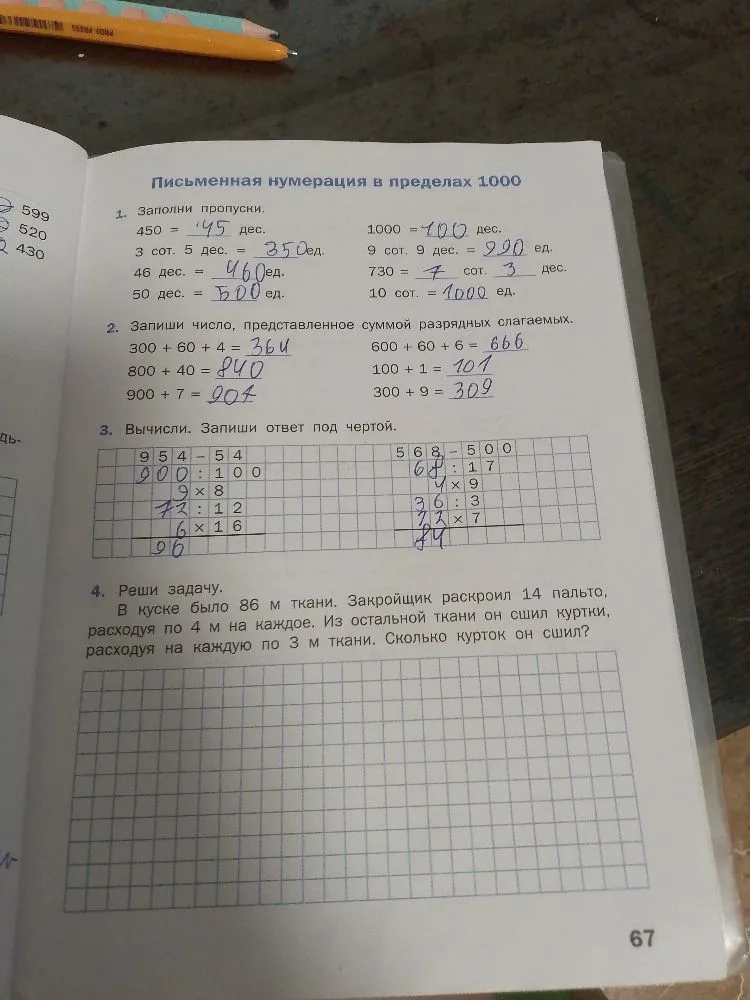 PROF-PRESS
599
520
430
дь-
Письменная нумерация в пределах 1000
1. Заполни пропуски.
450 = 45 дес. 1000 = 100 дес.
3 сот. 5 дес. = 350 ед. 9 сот. 9 дес. = 990 ед.
46 дес. = 460 ед. 730 = 7 сот. 3 дес.
50 дес. = 500 ед. 10 сот. = 1000 ед.
2. Запиши число, представленное суммой разрядных слагаемых.
300 + 60 + 4 = 364 600 + 60 + 6 = 666
800 + 40 = 840 100 + 1 = 101
900 + 7 = 907 300 + 9 = 309
3. Вычисли. Запиши ответ под чертой.
954-54 568-500
900:100 68:17
9×8 4×9
72:12 36:3
6×16 12×7
96 84
4. Реши задачу.
В куске было 86 м ткани. Закройщик раскроил 14 пальто,
расходуя по 4 м на каждое. Из остальной ткани он сшил куртки,
расходуя на каждую по 3 м ткани. Сколько курток он сшил?
67